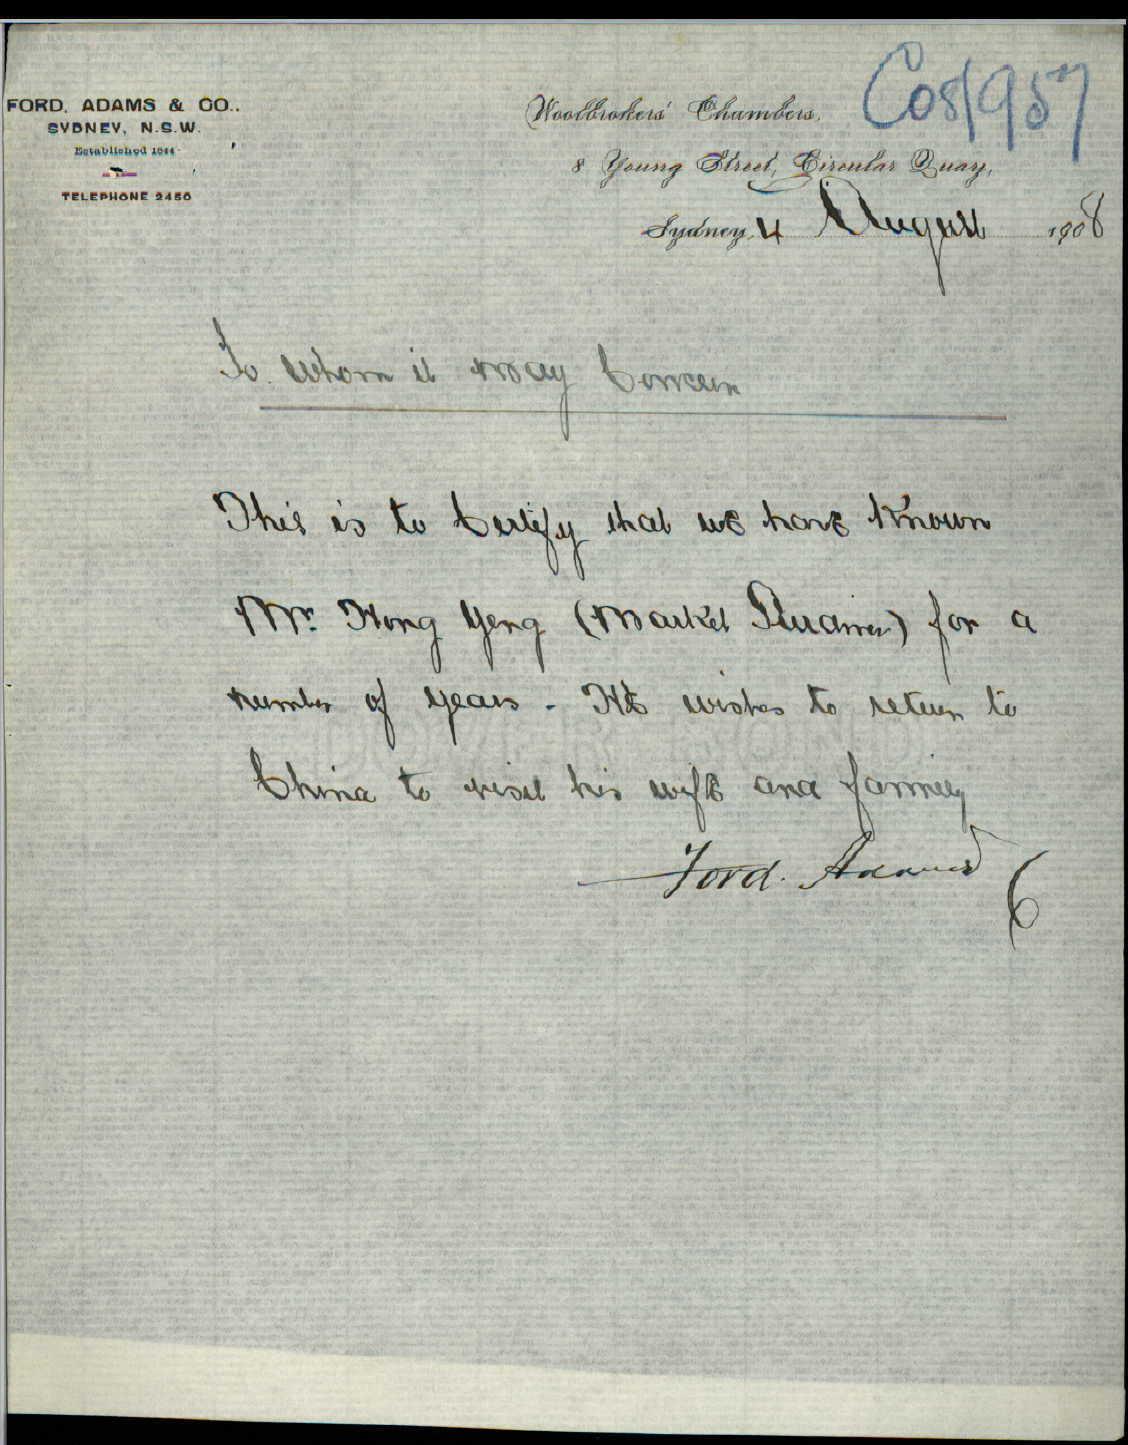 C08/957
FORD, ADAMS & CO.,
SYDNEY, N.S.W.
Established 1844
TELEPHONE 2450
Woolbrokers' Chambers,
8 Young Street, Circular Quay,
Sydney, 4 August 1908
To whom it may Concern
This is to Certify that we have known
Mr. Hong Yeng (Market Gardiner) for a
number of years - He wishes to return to
China to visit his wife and family
Ford. Adams & Co